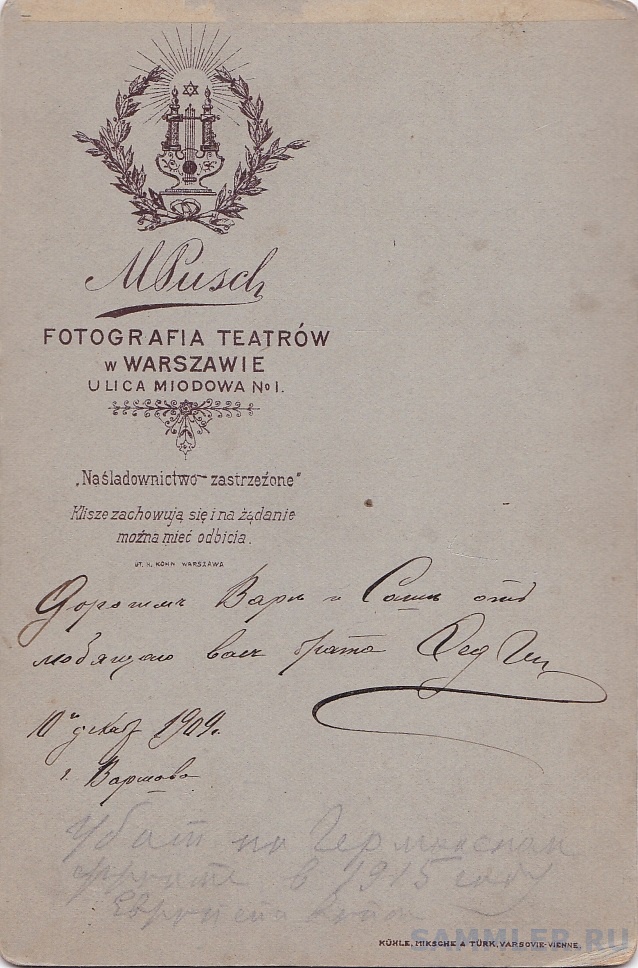 MPusch
FOTOGRAFIA TEATRÓW
w WARSZAWIE
ULICA MIODOWA No 1.
„Naśladownictwo zastrzeżone"
Klisze zachowują się i na żądanie
można mieć odbicia.
LIT. H. KOHN WARSZAWA
Дорогимъ Варѣ и Сашѣ отъ
любящаго васъ брата
10го декаб 1909г.
г. Варшава
Убит на Германском
фронте в 1915 году
KÜHLE, MIKSCHE & TÜRK, VARSOVIE-VIENNE.
SAMMLER.RU